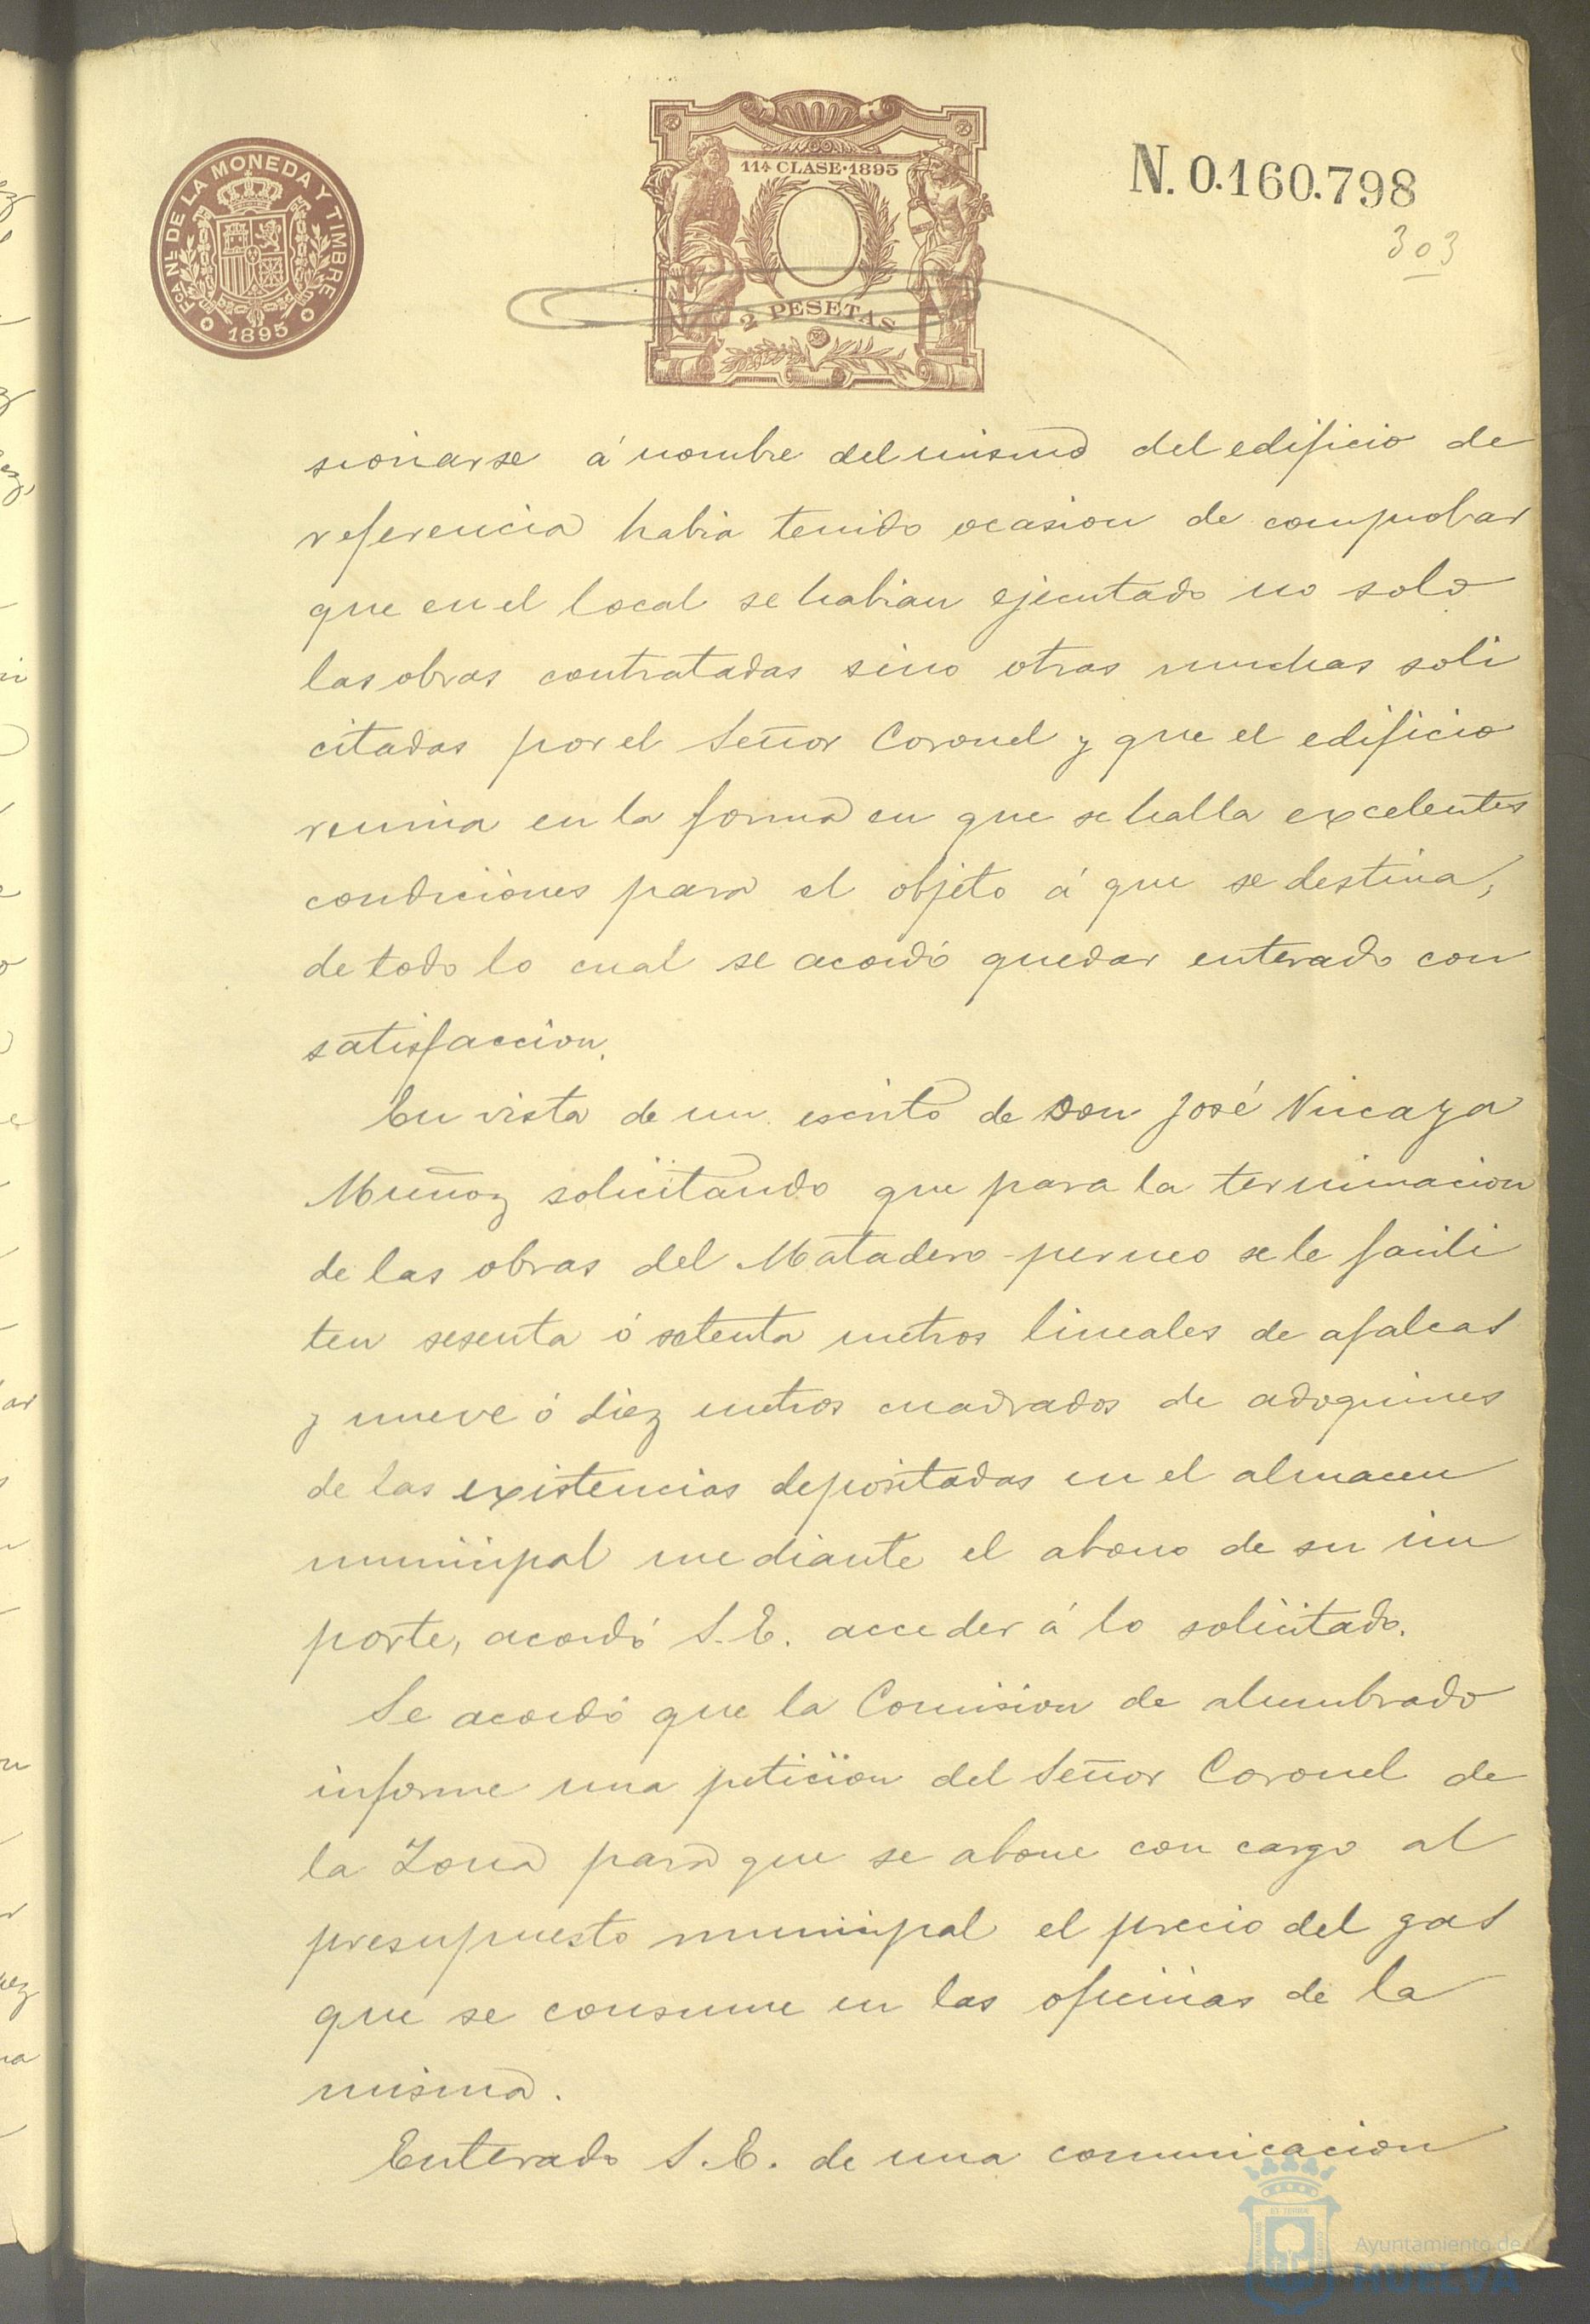 FCA NL. DE LA MONEDA Y TIMBRE
1895
11ª CLASE · 1895
2 PESETAS
N. 0.160.798
303
sionarse á nombre del mismo del edificio de
referencia habia tenido ocasion de comprobar
que en el local se habian ejecutado no solo
las obras contratadas sino otras muchas soli
citadas por el Señor Coronel y que el edificio
reunia en la forma en que se halla excelentes
condiciones para el objeto á que se destina,
de todo lo cual se acordó quedar enterado con
satisfaccion.
En vista de un escrito de Don José Vizcaya
Muñoz solicitando que para la terminacion
de las obras del Matadero-perneo se le facili
ten sesenta ó setenta metros lineales de
y nueve ó diez metros cuadrados de adoquines
de las existencias depositadas en el almacen
municipal mediante el abono de su im
porte, acordó S.E. acceder á lo solicitado.
Se acordó que la Comision de alumbrado
informe una peticion del Señor Coronel de
la Zona para que se abone con cargo al
presupuesto municipal el precio del gas
que se consume en las oficinas de la
misma.
Enterado S.E. de una comunicacion
Ayuntamiento de
HUELVA